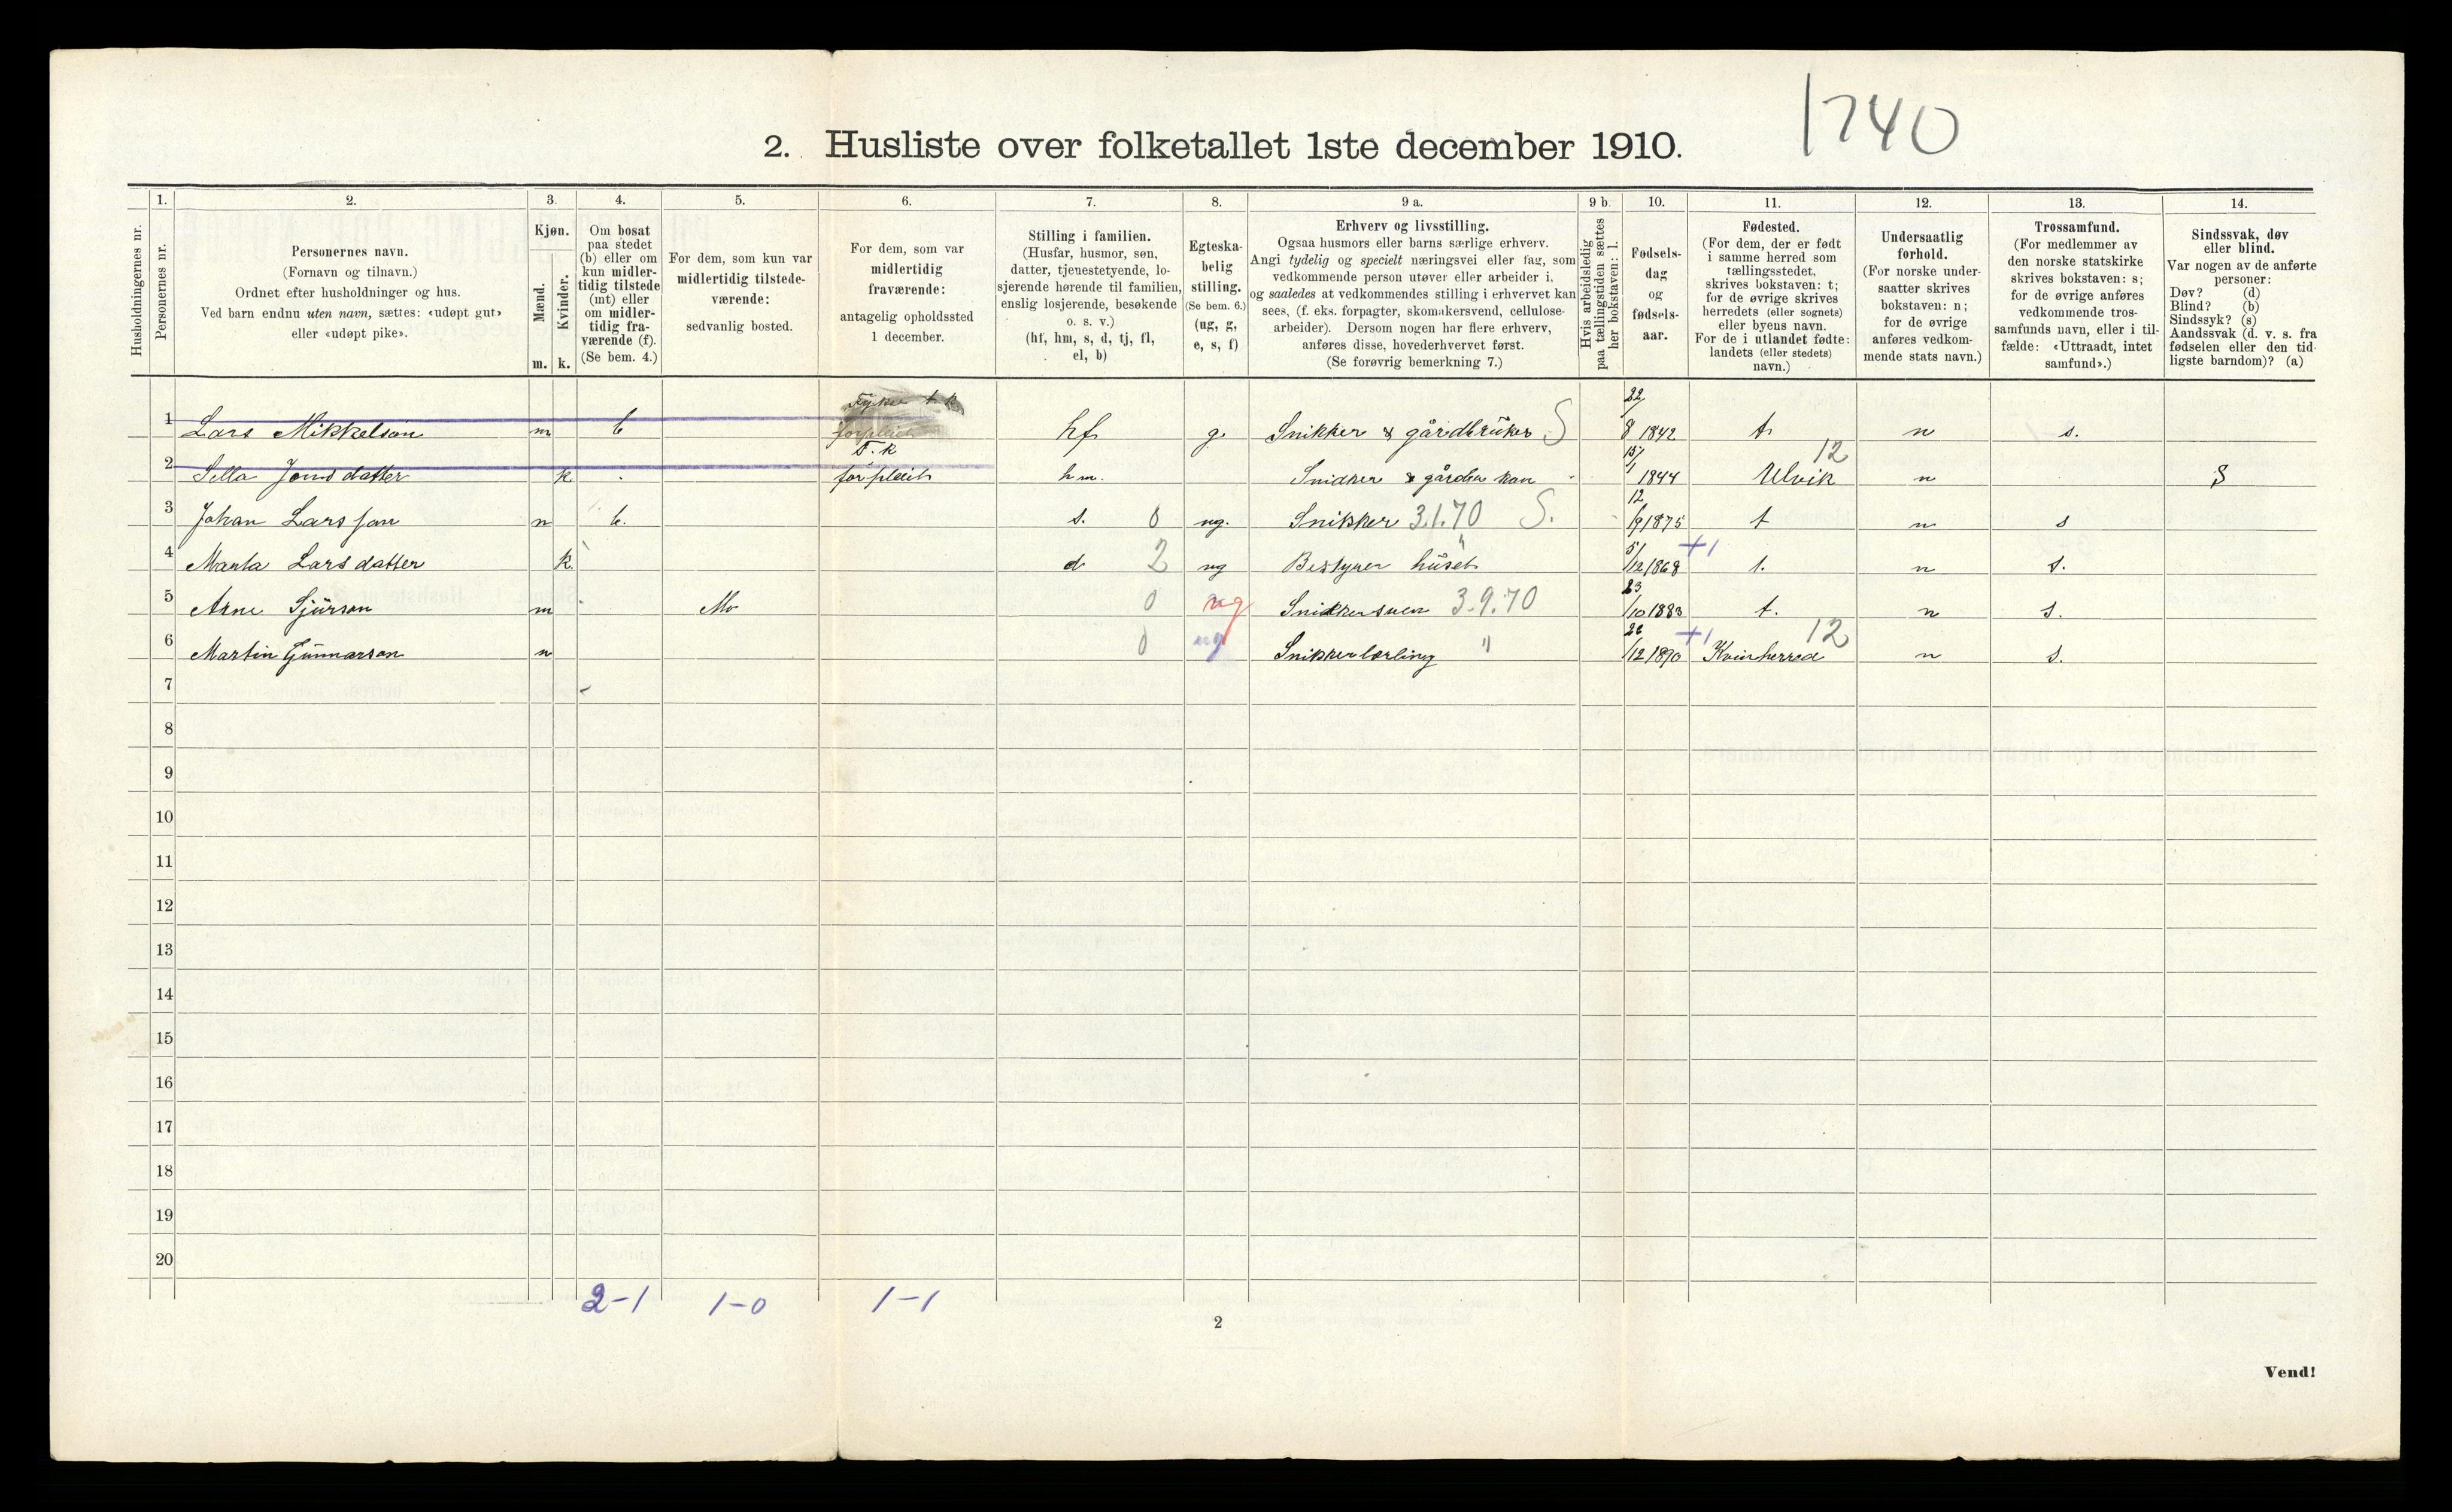 1740
2. Husliste over folketallet 1ste december 1910.
Husholdningernes nr.
1. Personernes nr.
2. Personernes navn. (Fornavn og tilnavn.) Ordnet efter husholdninger og hus. Ved barn endnu uten navn, sættes: «udøpt gut» eller «udøpt pike».
3. Kjøn. Mænd. m. Kvinder. k.
4. Om bosat paa stedet (b) eller om kun midlertidig tilstede (mt) eller om midlertidig fraværende (f). (Se bem. 4.)
5. For dem, som kun var midlertidig tilstedeværende: sedvanlig bosted.
6. For dem, som var midlertidig fraværende: antagelig opholdssted 1 december.
7. Stilling i familien. (Husfar, husmor, søn, datter, tjenestetyende, losjerende hørende til familien, enslig losjerende, besøkende o. s. v.) (hf, hm, s, d, tj, fl, el, b)
8. Egteskabelig stilling. (Se bem. 6.) (ug, g, e, s, f)
9 a. Erhverv og livsstilling. Ogsaa husmors eller barns særlige erhverv. Angi tydelig og specielt næringsvei eller fag, som vedkommende person utøver eller arbeider i, og saaledes at vedkommendes stilling i erhvervet kan sees, (f. eks. forpagter, skomakersvend, cellulosearbeider). Dersom nogen har flere erhverv, anføres disse, hovederhvervet først. (Se forøvrig bemerkning 7.)
9 b. Hvis arbeidsledig paa tællingstiden sættes her bokstaven: l.
10. Fødselsdag og fødselsaar.
11. Fødested. (For dem, der er født i samme herred som tællingsstedet, skrives bokstaven: t; for de øvrige skrives herredets (eller sognets) eller byens navn. For de i utlandet fødte: landets (eller stedets) navn.)
12. Undersaatlig forhold. (For norske undersaatter skrives bokstaven: n; for de øvrige anføres vedkommende stats navn.)
13. Trossamfund. (For medlemmer av den norske statskirke skrives bokstaven: s; for de øvrige anføres vedkommende trossamfunds navn, eller i tilfælde: «Uttraadt, intet samfund».)
14. Sindssvak, døv eller blind. Var nogen av de anførte personer: Døv? (d) Blind? (b) Sindssyk? (s) Aandssvak (d. v. s. fra fødselen eller den tidligste barndom)? (a)
1 Lars Mikkelson m b hf g. Snikker & gårdbrüker S 22/8 1842 t. n s.
2 Silla Jonsdatter k. F.k forpleit hm. Snicker & gårdbr kon 15/1 1844 Ulvik 12 n S
3 Johan Larsson m b. s. 0 ug. Snikker 3.1.70 S. 12/9 1875 t n s
4 Manta Larsdatter k. d 2 ug Bestyrer hüset " 5/12 1868 +1 t. n s.
5 Arne Sjürson m Mo 0 ug Snikkersven 3.9.70 23/10 1883 t. n s.
6 Martin Günnarson m 0 ug Snikkerlærling " 26/12 1890 +1 Kvinherred 12 n s.
7
8
9
10
11
12
13
14
15
16
17
18
19
20
2-1 1-0 1-1
2
Vend!